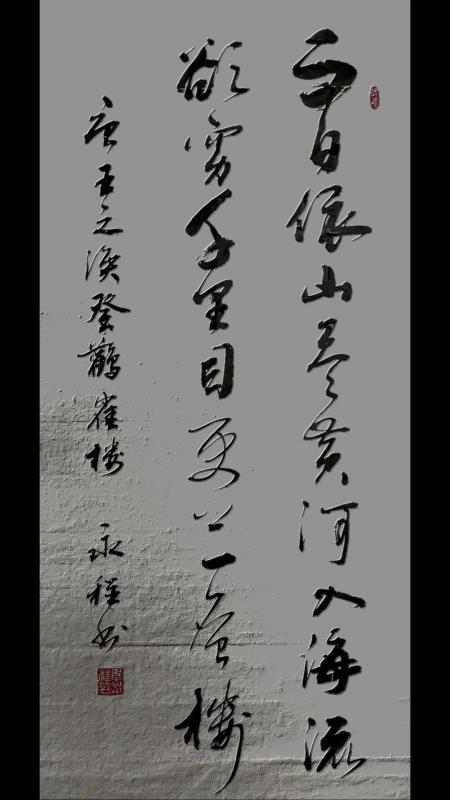 白日依山尽黄河入海流
欲穷千里目更上一层楼
唐王之涣登鹳雀楼 永程书